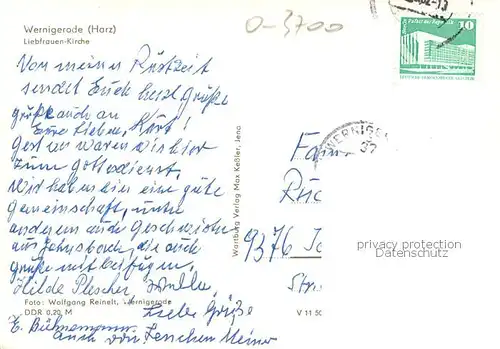 Wernigerode (Harz)
Liebfrauen-Kirche
0-3700
10
Von meiner Rüstzeit
sendet Euch herzl. Grüße
grüßt auch an
Eure Lieben, Kurt!
Gestern waren wir hier
zum Gottesdienst.
Wir haben hier eine gute
Gemeinschaft, unter
anderem auch Geschwister
aus Jahnsbach, die auch
Grüße mit beifügen.
Hilde Plescher,
Foto: Wolfgang Reinelt, Wernigerode
DDR 0,20 M
Liebe Grüße
E. Bühnemann
auch von Lenchen Meiner
Wartburg Verlag Max Keßler, Jena
WERNIGE
37
Fam
9376
Str
V 11 50
protection privacy
Datenschutz